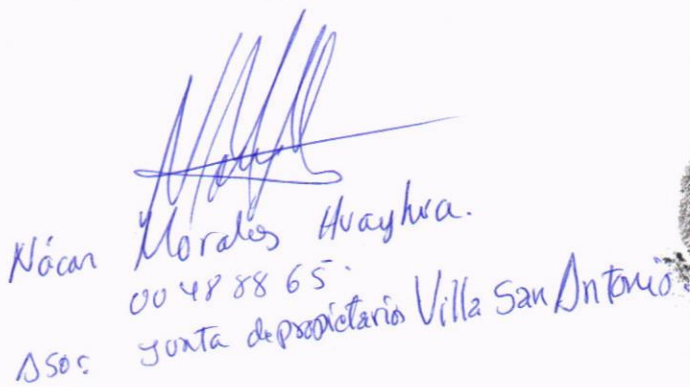 Nácan Morales Huayhua.
00488865.
Asoc Junta de propietarios Villa San Antonio